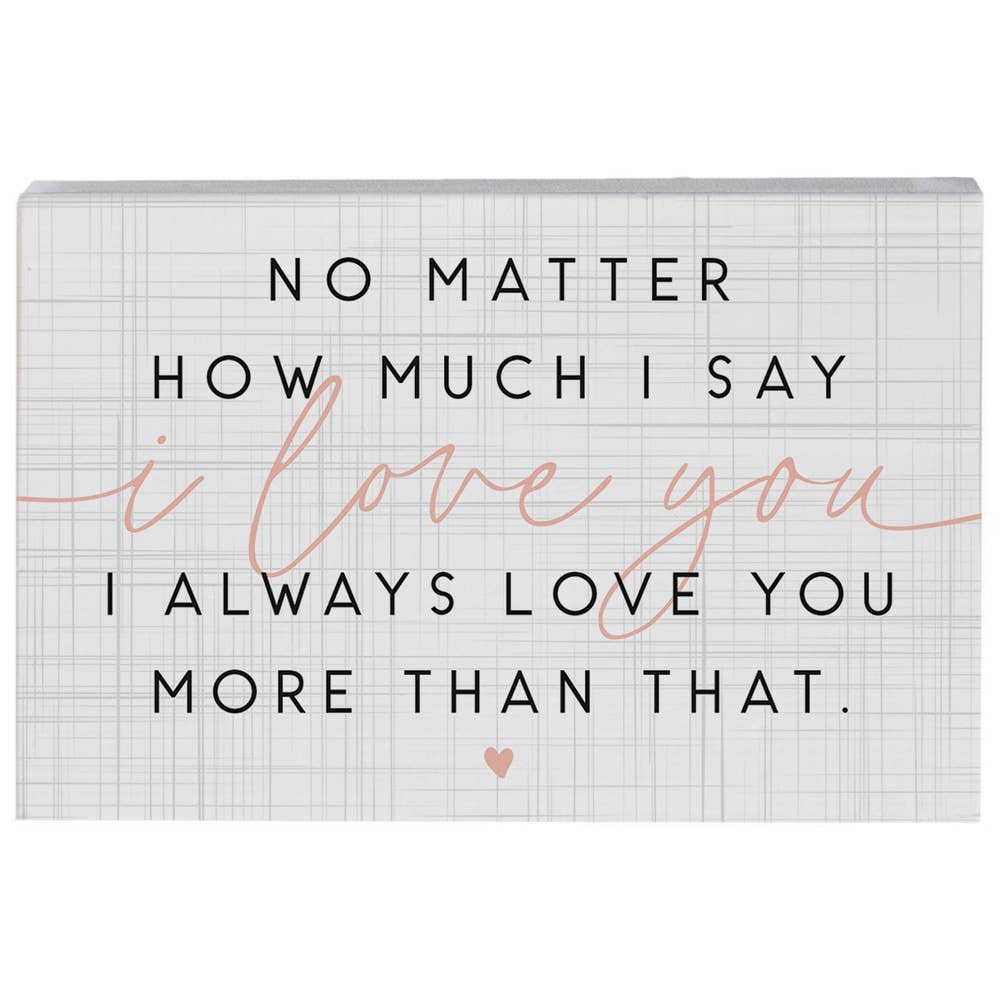 NO MATTER
HOW MUCH I SAY
i love you
I ALWAYS LOVE YOU
MORE THAN THAT.